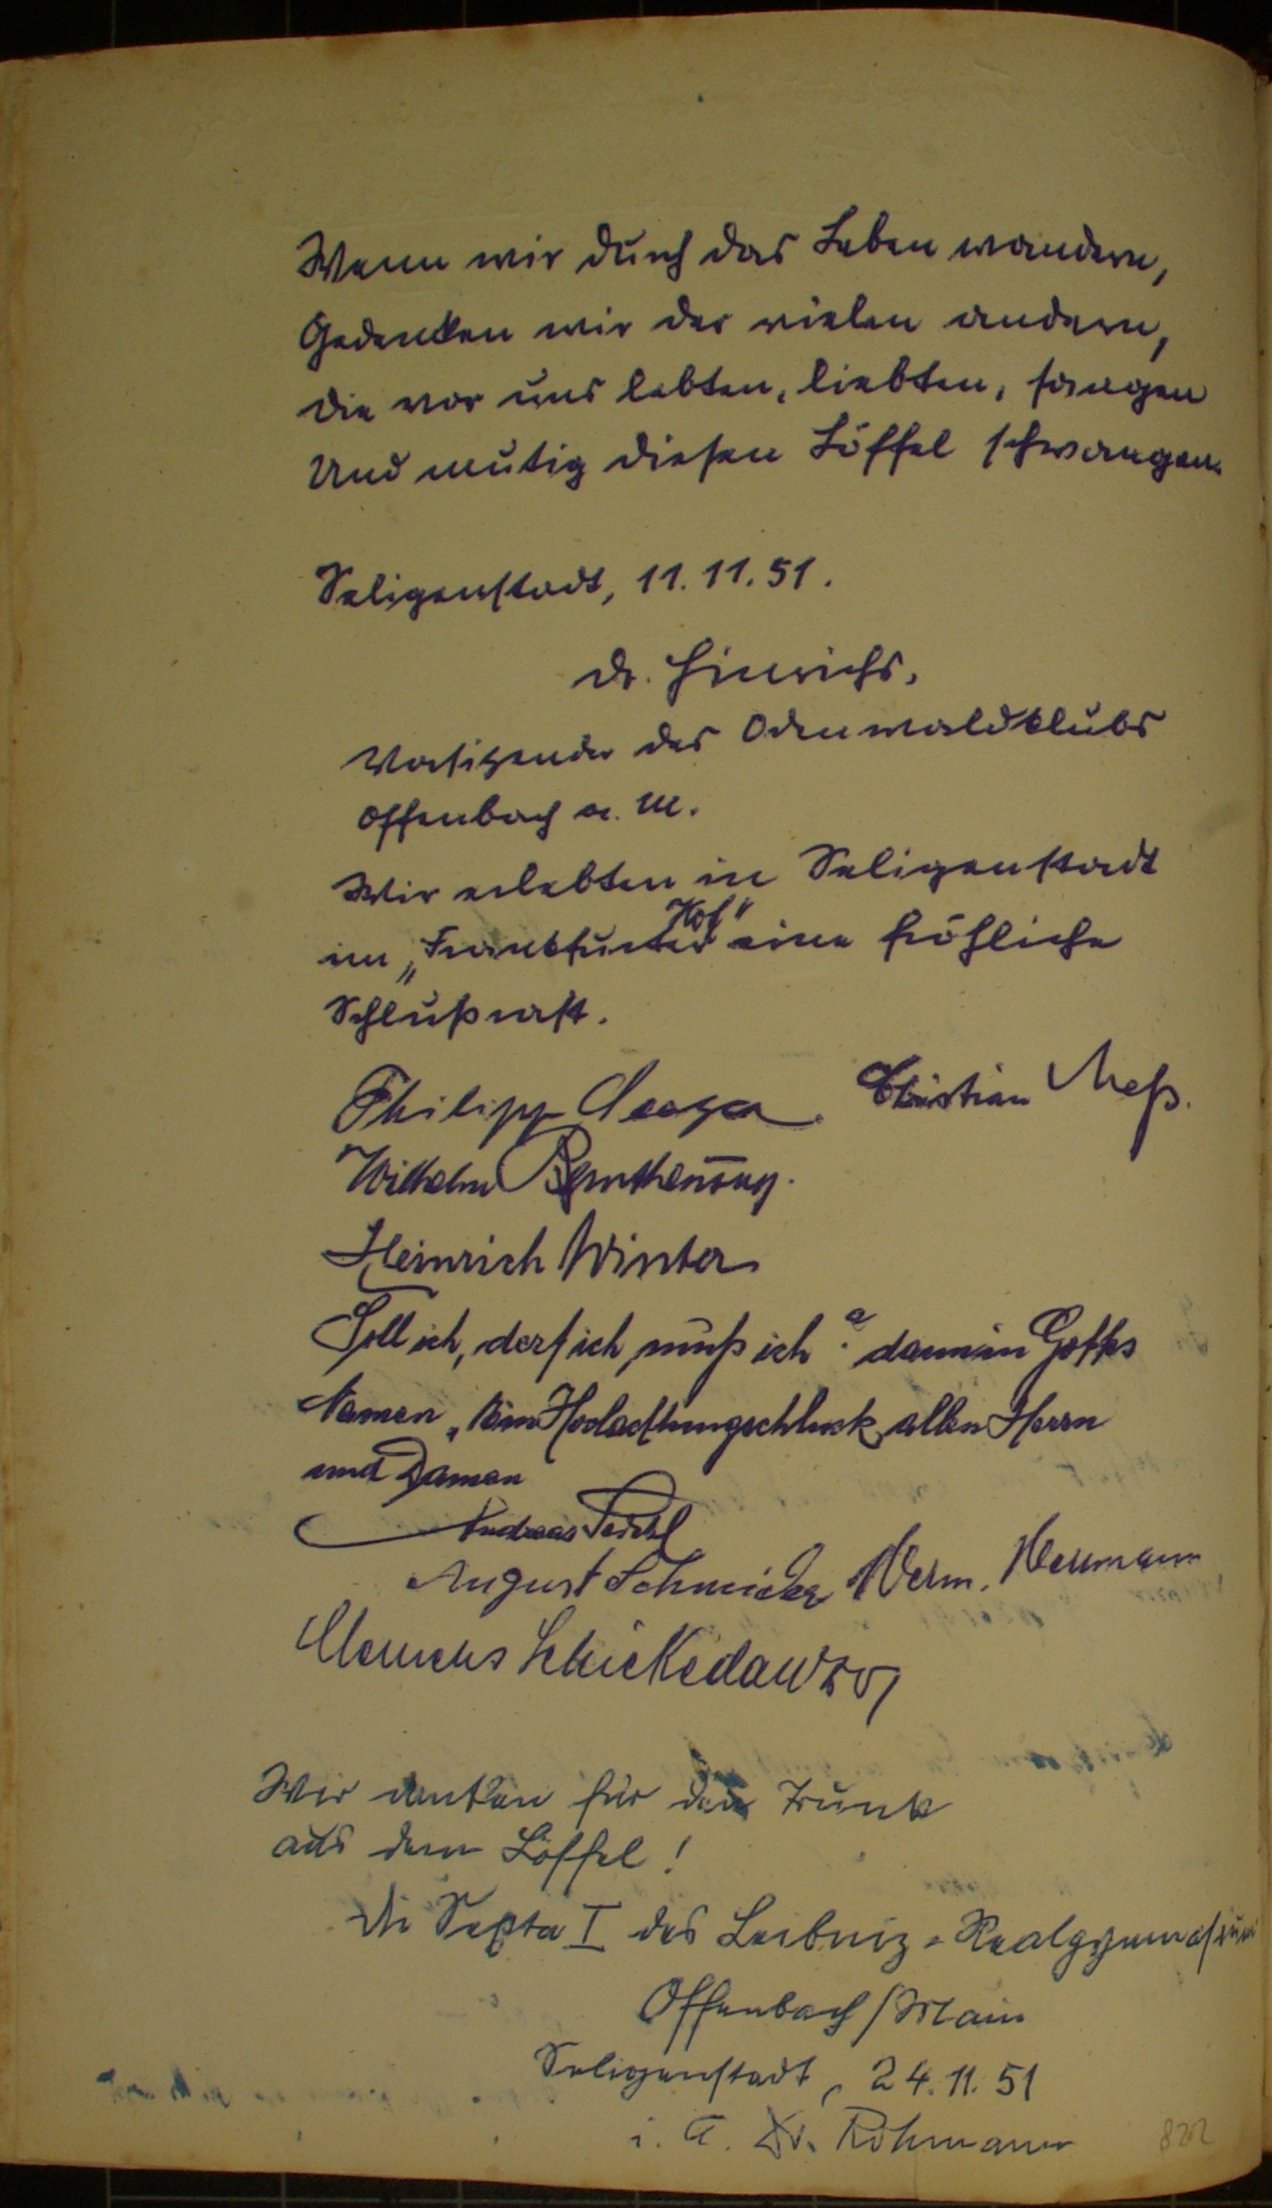 Wenn wir durch das Leben wandern,
Gedenken wir der vielen andern,
Die vor uns lebten, liebten, sangen
Und mutig diesen Löffel schwangen.
Seligenstadt, 11.11.51.
Dr. Hinrichs,
Vorsitzender des Odenwaldklubs
Offenbach a. M.
Wir erlebten in Seligenstadt
im „Frankfurter Hof" eine fröhliche
Schlußrast.
Philipp Christian Meß.
Wilhelm
Heinrich Winter
Soll ich, derf ich, muß ich? dann in Gottes
Namen, allen Herrn
und Damen
Andreas
August Schneider Herm. Hermann
Clemens Schickedanz
Wir danken für den Trunk
aus dem Löffel!
Die Sexta I des Leibniz-Realgymnasium
Offenbach/Main
Seligenstadt, 24.11.51
i. A. Dr.
822